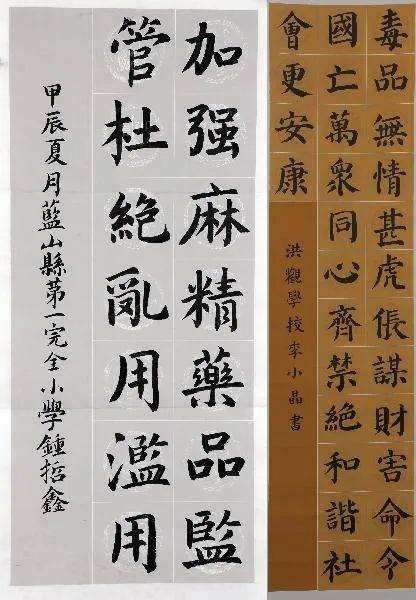 毒品無情甚虎倀謀財害命令
國亡萬衆同心齊禁絕和諧社
會更安康
洪觀學校李小晶書
加强麻精藥品監
管杜絕亂用濫用
甲辰夏月藍山縣第一完全小學鍾哲鑫